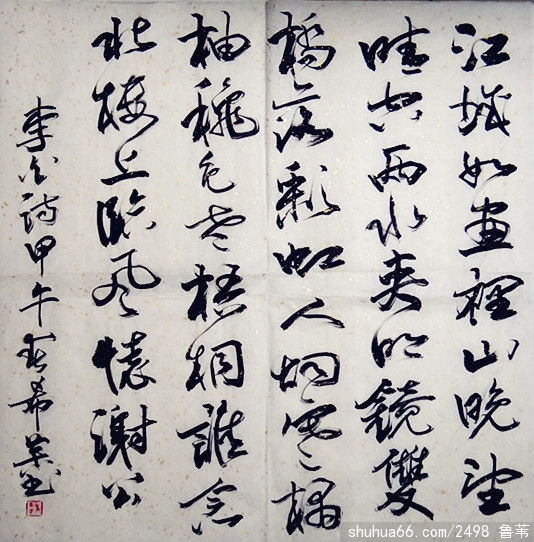 江城如畫裡山晚望
晴空兩水夾明鏡雙
橋落彩虹人烟寒橘
柚穐色老梧桐誰念
北樓上臨風懷謝公
李白詩甲午希書
shuhua66.com/2498 鲁苇